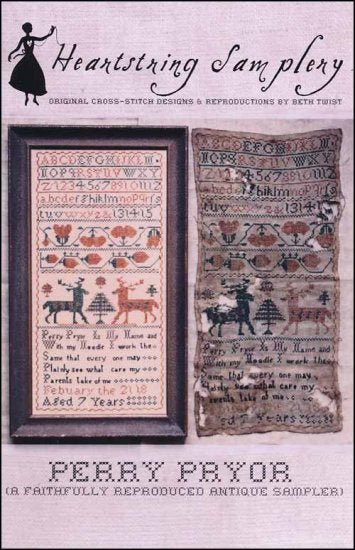 Heartstring Samplery
ORIGINAL CROSS-STITCH DESIGNS & REPRODUCTIONS BY BETH TWIST
ABCDEFGHIJKLM
NOPQRSTUVWXY
Z123456789101112
abcdefghiklmnoPqrs
tuvwxyz&131415
Perry Prye Is My Name and
With my Needle I work the
Same that every one may
Plainly see what care my
Parents take of me
Febuary the 21.18
Aged 7 Years
ABCDEFGHIJKLM
NOPQRSTUVWXY
Z123456789101112
hiklmnoPqrs
131415
Perry Prye Is My Name and
With my Needle I work the
Same that every one may
Plainly see what care my
Parents take of me
Aged 7 Years
PERRY PRYOR
(A FAITHFULLY REPRODUCED ANTIQUE SAMPLER)